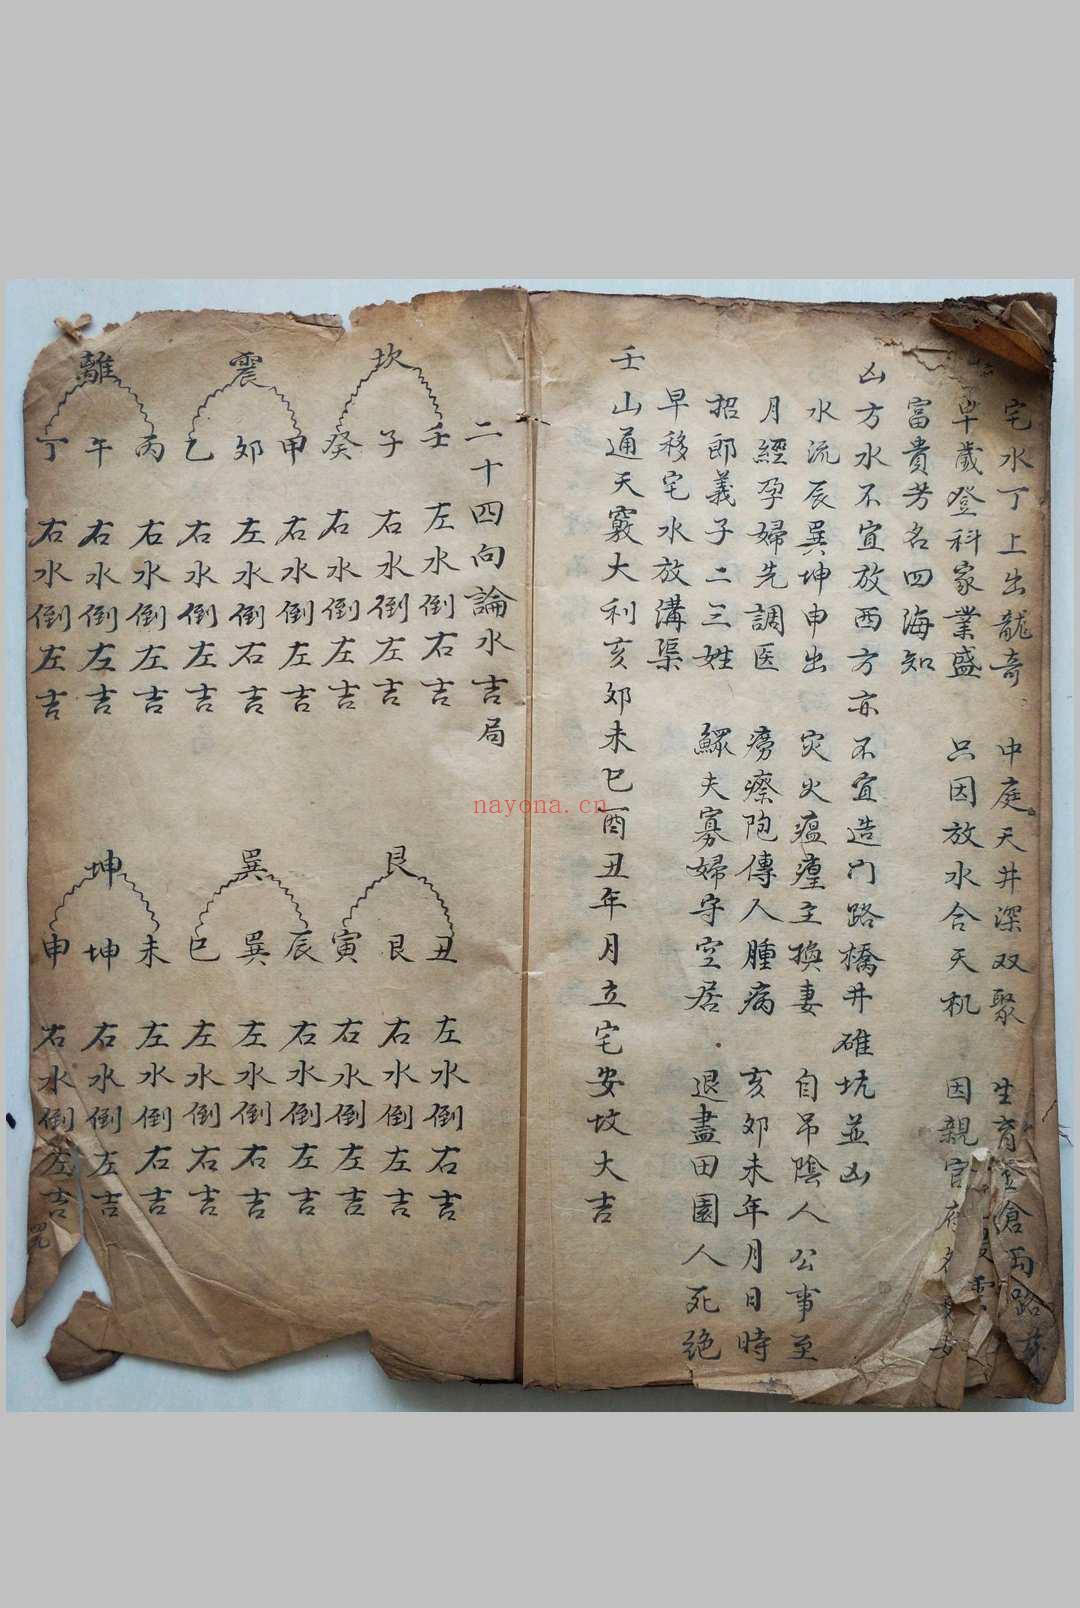 宅水丁上出龍奇 中庭天井深双聚 生育 倉両路
早歲登科家業盛 只因放水合天机 因親官府
富貴芳名四海知
凶方水不宜放西方亦不宜造门路橋井碓坑並凶
水流辰巽坤申出 灾火瘟瘽主換妻 自吊陰人公事至
月經孕婦先調医 癆瘵 傳人腫病 亥卯未年月日時
招郎義子二三姓 鰥夫寡婦守空居 退盡田園人死绝
早移宅水放溝渠
壬山通天竅大利亥卯未巳酉丑年月立宅安坟大吉
二十四向論水吉局
坎
壬 左水倒右吉
子 右水倒左吉
癸 右水倒左吉
震
甲 右水倒左吉
卯 左水倒右吉
乙 右水倒左吉
離
丙 右水倒左吉
午 右水倒左吉
丁 右水倒左吉
艮
丑 左水倒右吉
艮 右水倒左吉
寅 右水倒左吉
巽
辰 右水倒左吉
巽 左水倒右吉
巳 左水倒右吉
坤
未 左水倒右吉
坤 右水倒左吉
申 右水倒左吉
nayona.cn